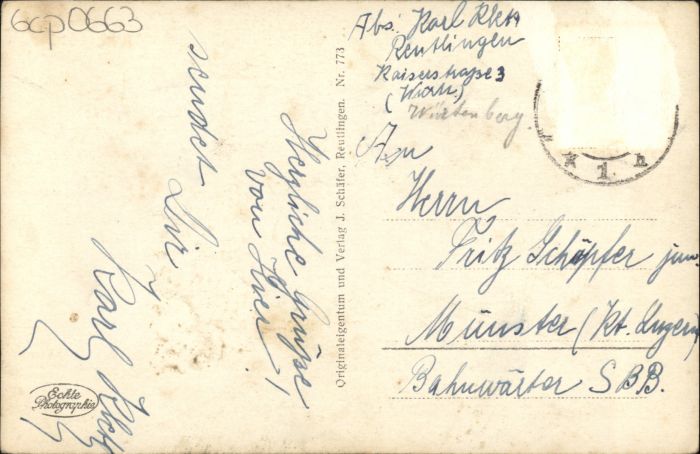 6cp0663
Abs: Karl Klett
Reutlingen
Kaiserstraße 3
(Württ.)
Würtenberg.
An
Herrn
Fritz Schöpfer jun.
Münster (Kt. Luzern)
Bahnwärter SBB.
Herzliche Grüße
von hier!
sendet
Dir
Karl
Originaleigentum und Verlag J. Schäfer, Reutlingen. Nr. 773
Echte
Photographie
k 1 h